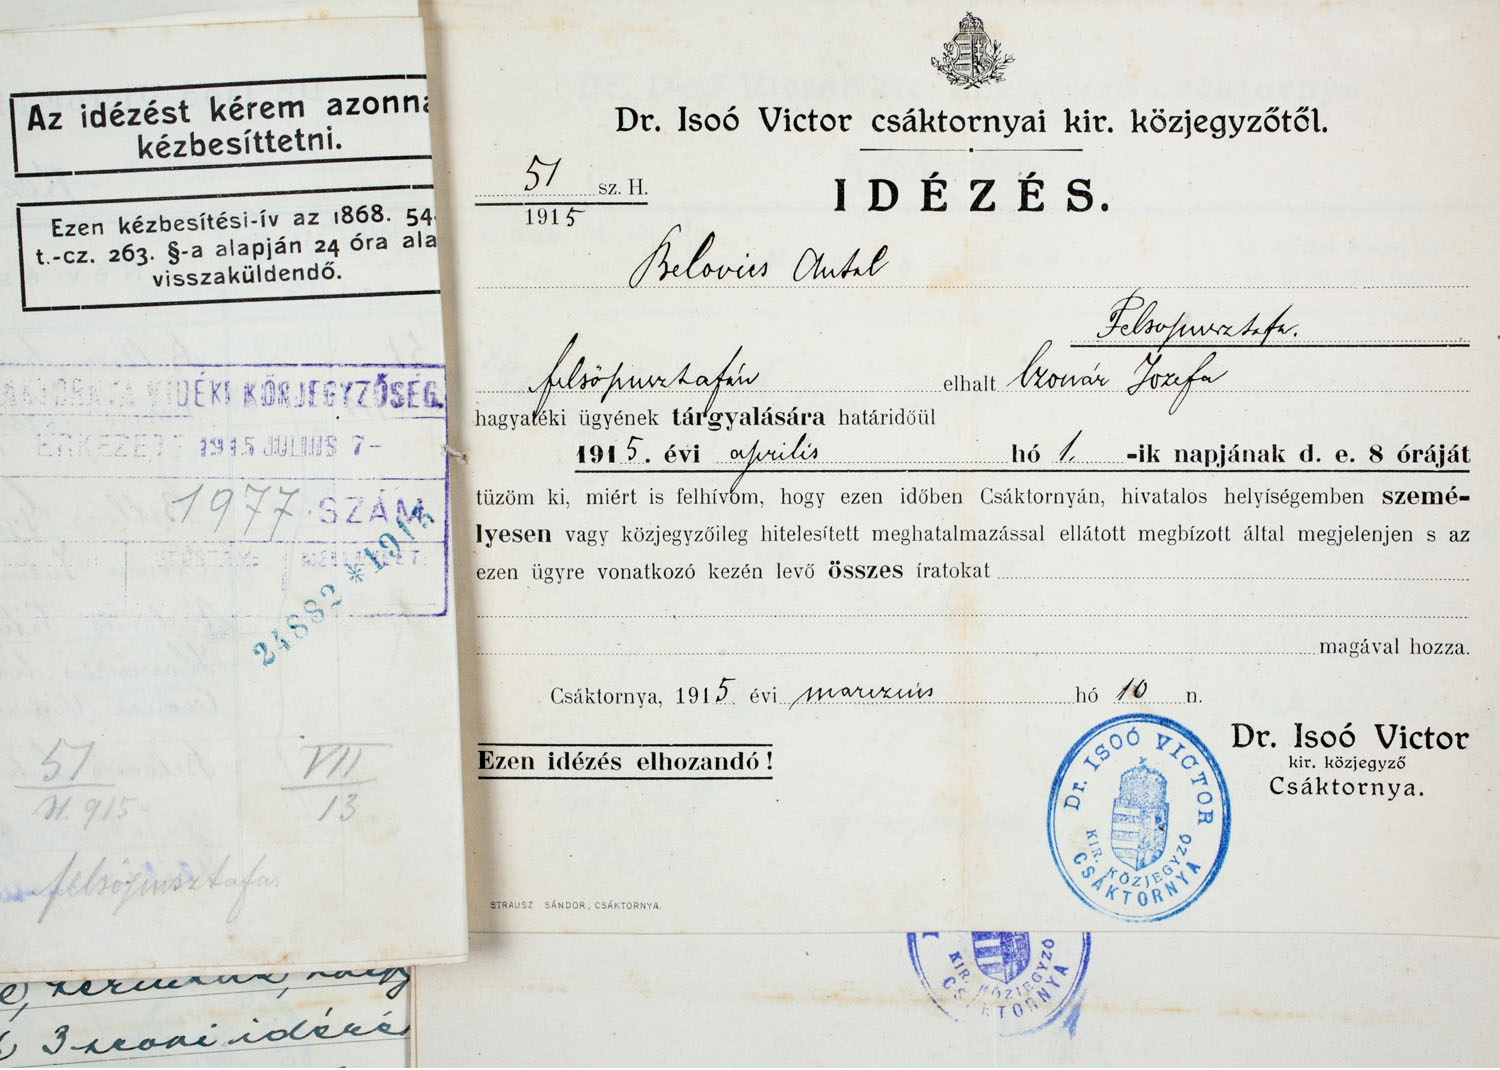 Az idézést kérem azonna
kézbesíttetni.
Ezen kézbesítési-ív az 1868. 54-
t.-cz. 263. §-a alapján 24 óra ala
visszaküldendő.
AKTORNYA VIDÉKI KÖRJEGYZŐSÉG.
ÉRKEZETT 1915 JULIUS 7-
1977 SZÁM
24882 * 1914
51
H. 915
VII
13
felsőpusztafa.
3
Dr. Isoó Victor csáktornyai kir. közjegyzőtől.
51 sz. H.
1915
IDÉZÉS.
Belovics Antal
Felsőpusztafa.
felsőpusztafán elhalt Czonár Jozefa
hagyatéki ügyének tárgyalására határidőül
1915. évi április hó 1. -ik napjának d. e. 8 óráját
tüzöm ki, miért is felhívom, hogy ezen időben Csáktornyán, hivatalos helyíségemben szemé-
lyesen vagy közjegyzőileg hitelesített meghatalmazással ellátott megbízott által megjelenjen s az
ezen ügyre vonatkozó kezén levő összes íratokat
magával hozza.
Csáktornya, 1915. évi marczius hó 10 n.
Ezen idézés elhozandó!
Dr. Isoó Victor
kir. közjegyző
Csáktornya.
Dr. ISOÓ VICTOR
KIR. KÖZJEGYZŐ
CSÁKTORNYA
STRAUSZ SÁNDOR, CSÁKTORNYA.
KIR. KÖZJEGYZŐ
CSÁKTORNYA